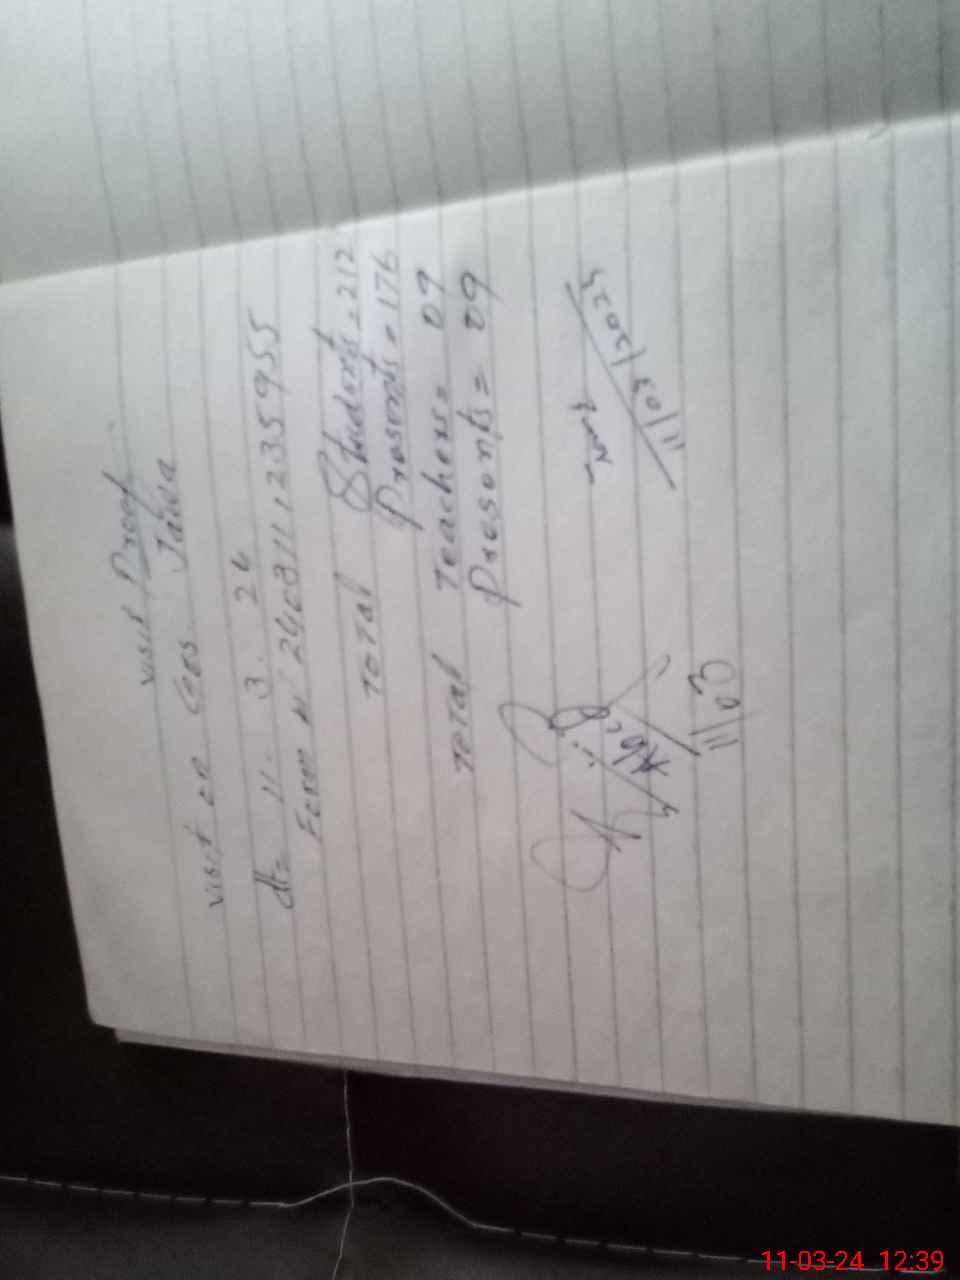 visit Proof
visit on GGS Jahua
dt= 11. 3. 24
Form N 24031112359 55
Total Students = 212
Presents = 176
Total Teachers = 09
Presents = 09
11/03/2024
11/03
11-03-24 12:39